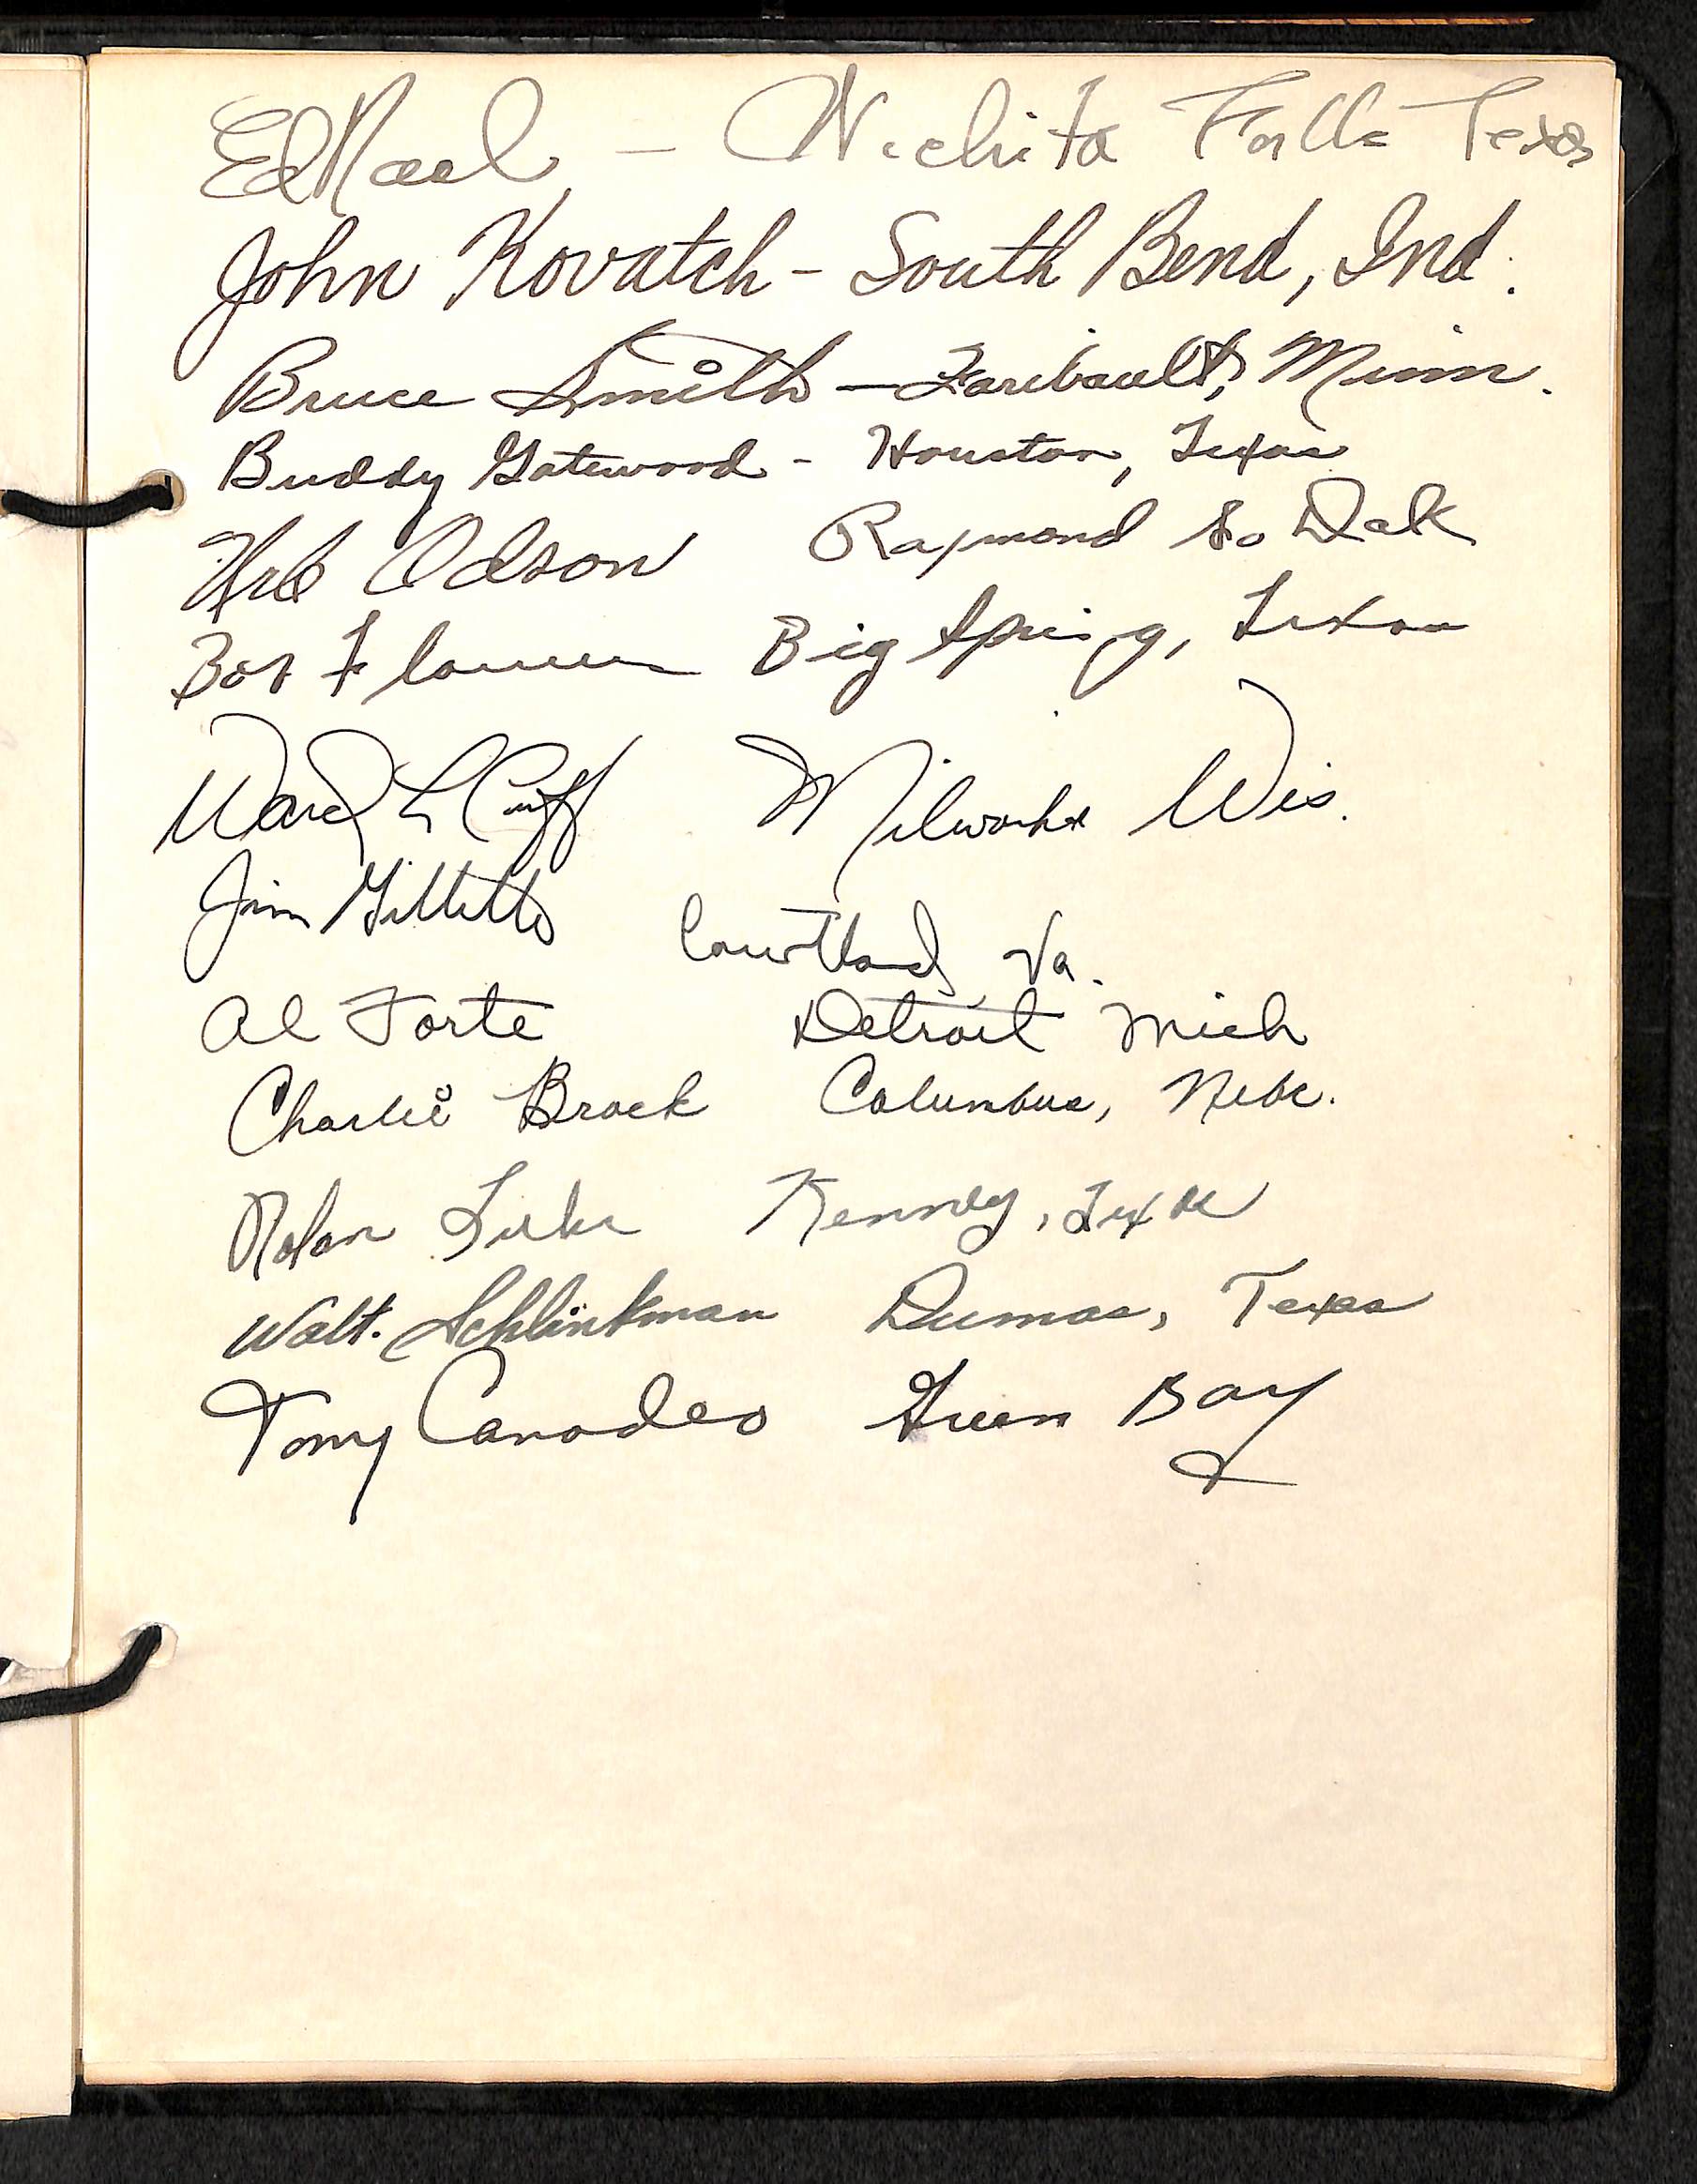 Ed Neal - Wichita Falls Texas
John Kovatch - South Bend, Ind.
Bruce Smith - Faribault, Minn.
Buddy Gatewood - Houston, Texas
Urb Odson Raymond So Dak
Bob Flowers Big Spring, Texas
Ward L Cuff Milwaukee Wis.
Jim Gillette Courtland, Va.
Al Forte Detroit Mich
Charlie Brock Columbus, Nebr.
Nolan Luhn Kenney, Texas
Walt. Schlinkman Dumas, Texas
Tony Canadeo Green Bay